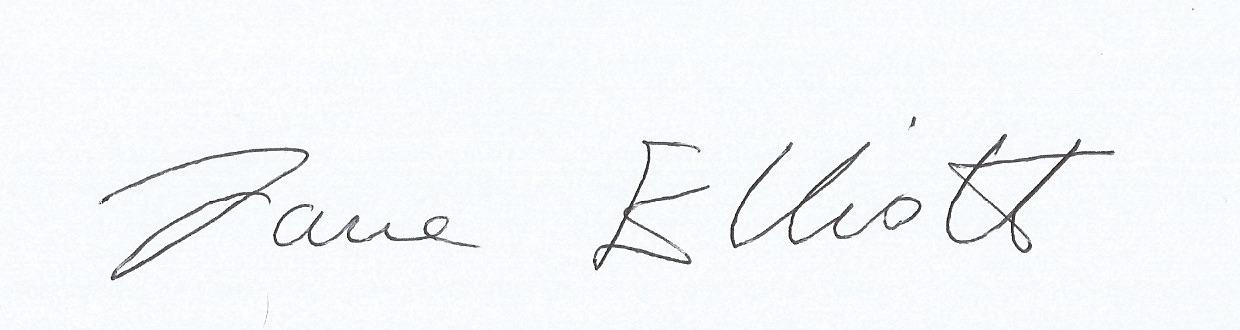 Jane Elliott